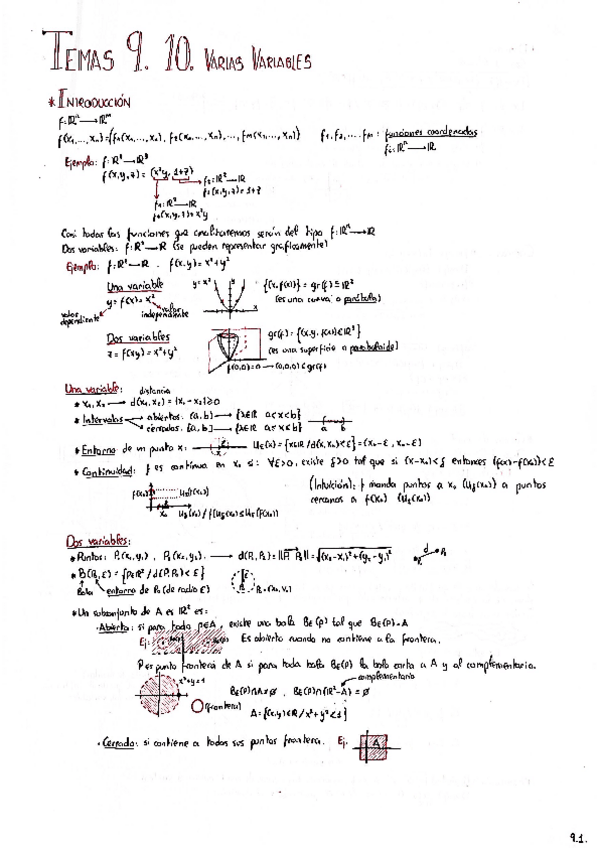 TEMAS 9. 10. VARIAS VARIABLES
* INTRODUCCIÓN
f: ℝⁿ → ℝᵐ
f(x₁,...,xₙ) = (f₁(x₁,...,xₙ), f₂(x₁,...,xₙ),..., fₘ(x₁,...,xₙ)) f₁, f₂,... fₘ: funciones coordenadas
fᵢ: ℝⁿ → ℝ
Ejemplo: f: ℝ³ → ℝ²
f(x,y,z) = (x²y, 1+z)
f₂: ℝ³ → ℝ
f₂(x,y,z) = 1+z
f₁: ℝ³ → ℝ
f₁(x,y,z) = x²y
Casi todas las funciones que analizaremos serán del tipo f: ℝⁿ → ℝ
Dos variables: f: ℝ² → ℝ (se pueden representar gráficamente)
Ejemplo: f: ℝ² → ℝ . f(x,y) = x²+y²
Una variable
y = f(x) = x²
valor dependiente
valor independiente
y = x²
{(x, f(x))} = gr(f) ⊆ ℝ²
(es una curva o parábola)
Dos variables
z = f(x,y) = x²+y²
(es una superficie o paraboloide)
f(0,0) = 0 → (0,0,0) ∈ gr(f)
Una variable:
distancia
* x₁, x₂ → d(x₁,x₂) = |x₁-x₂| ≥ 0
* Intervalos
abiertos: (a,b) → {x∈ℝ a<x<b}
cerrados: [a,b] → {x∈ℝ a≤x≤b}
a b
* Entorno de un punto x:
* Continuidad: f es continua en x₀ si: ∀ε>0, existe δ>0 tal que si |x-x₀|<δ entonces |f(x)-f(x₀)|<ε
(Intuición): f manda puntos a x₀ (Uδ(x₀)) a puntos
cercanos a f(x₀)
Dos variables:
* Puntos: P₁(x₁,y₁), P₂(x₂,y₂) → d(P₁,P₂) = ||P₁P₂|| = √(x₂-x₁)²+(y₂-y₁)²
d
* B(P₀,ε) = {P∈ℝ² / d(P,P₀) < ε}
Bola
entorno de P₀ (de radio ε)
P₀ = (x₀,y₀)
* Un subconjunto de A es ℝ² es:
· Abierto: si para todo p∈A, existe una bola Bε(p) tal que Bε(p)⊂A
Ej:
Es abierto cuando no contiene a la frontera.
P es punto frontera de A si para toda bola Bε(p) la bola corta a A y al complementario.
complementario
x²+y²=1
Bε(p)∩A≠∅ , Bε(p)∩(ℝ²-A) = ∅
(frontera)
A = {(x,y)∈ℝ / x²+y²<1}
· Cerrado: si contiene a todos sus puntos frontera. Ej.
A
9.1.